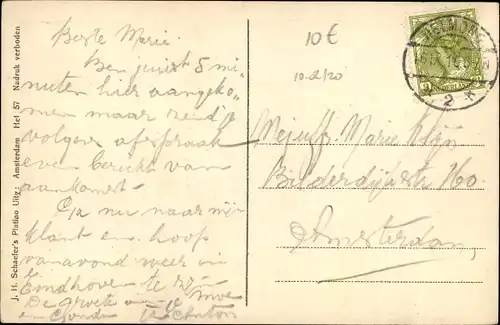 Beste Marie.
Ben juist 5 mi-
nuten hier aangeko-
men maar zend je
volgens afspraak
even bericht van
aankomst.
Ga nu naar mijn
klant en hoop
vanavond weer in
Eindhoven te zijn
De groeten
J. H. Schaefer's Platino Uitg: Amsterdam Hel 57 Nadruk verboden
10€
HELMOND
2
Mejuffr. Marie
Bilderdijkstr 160.
Amsterdam,